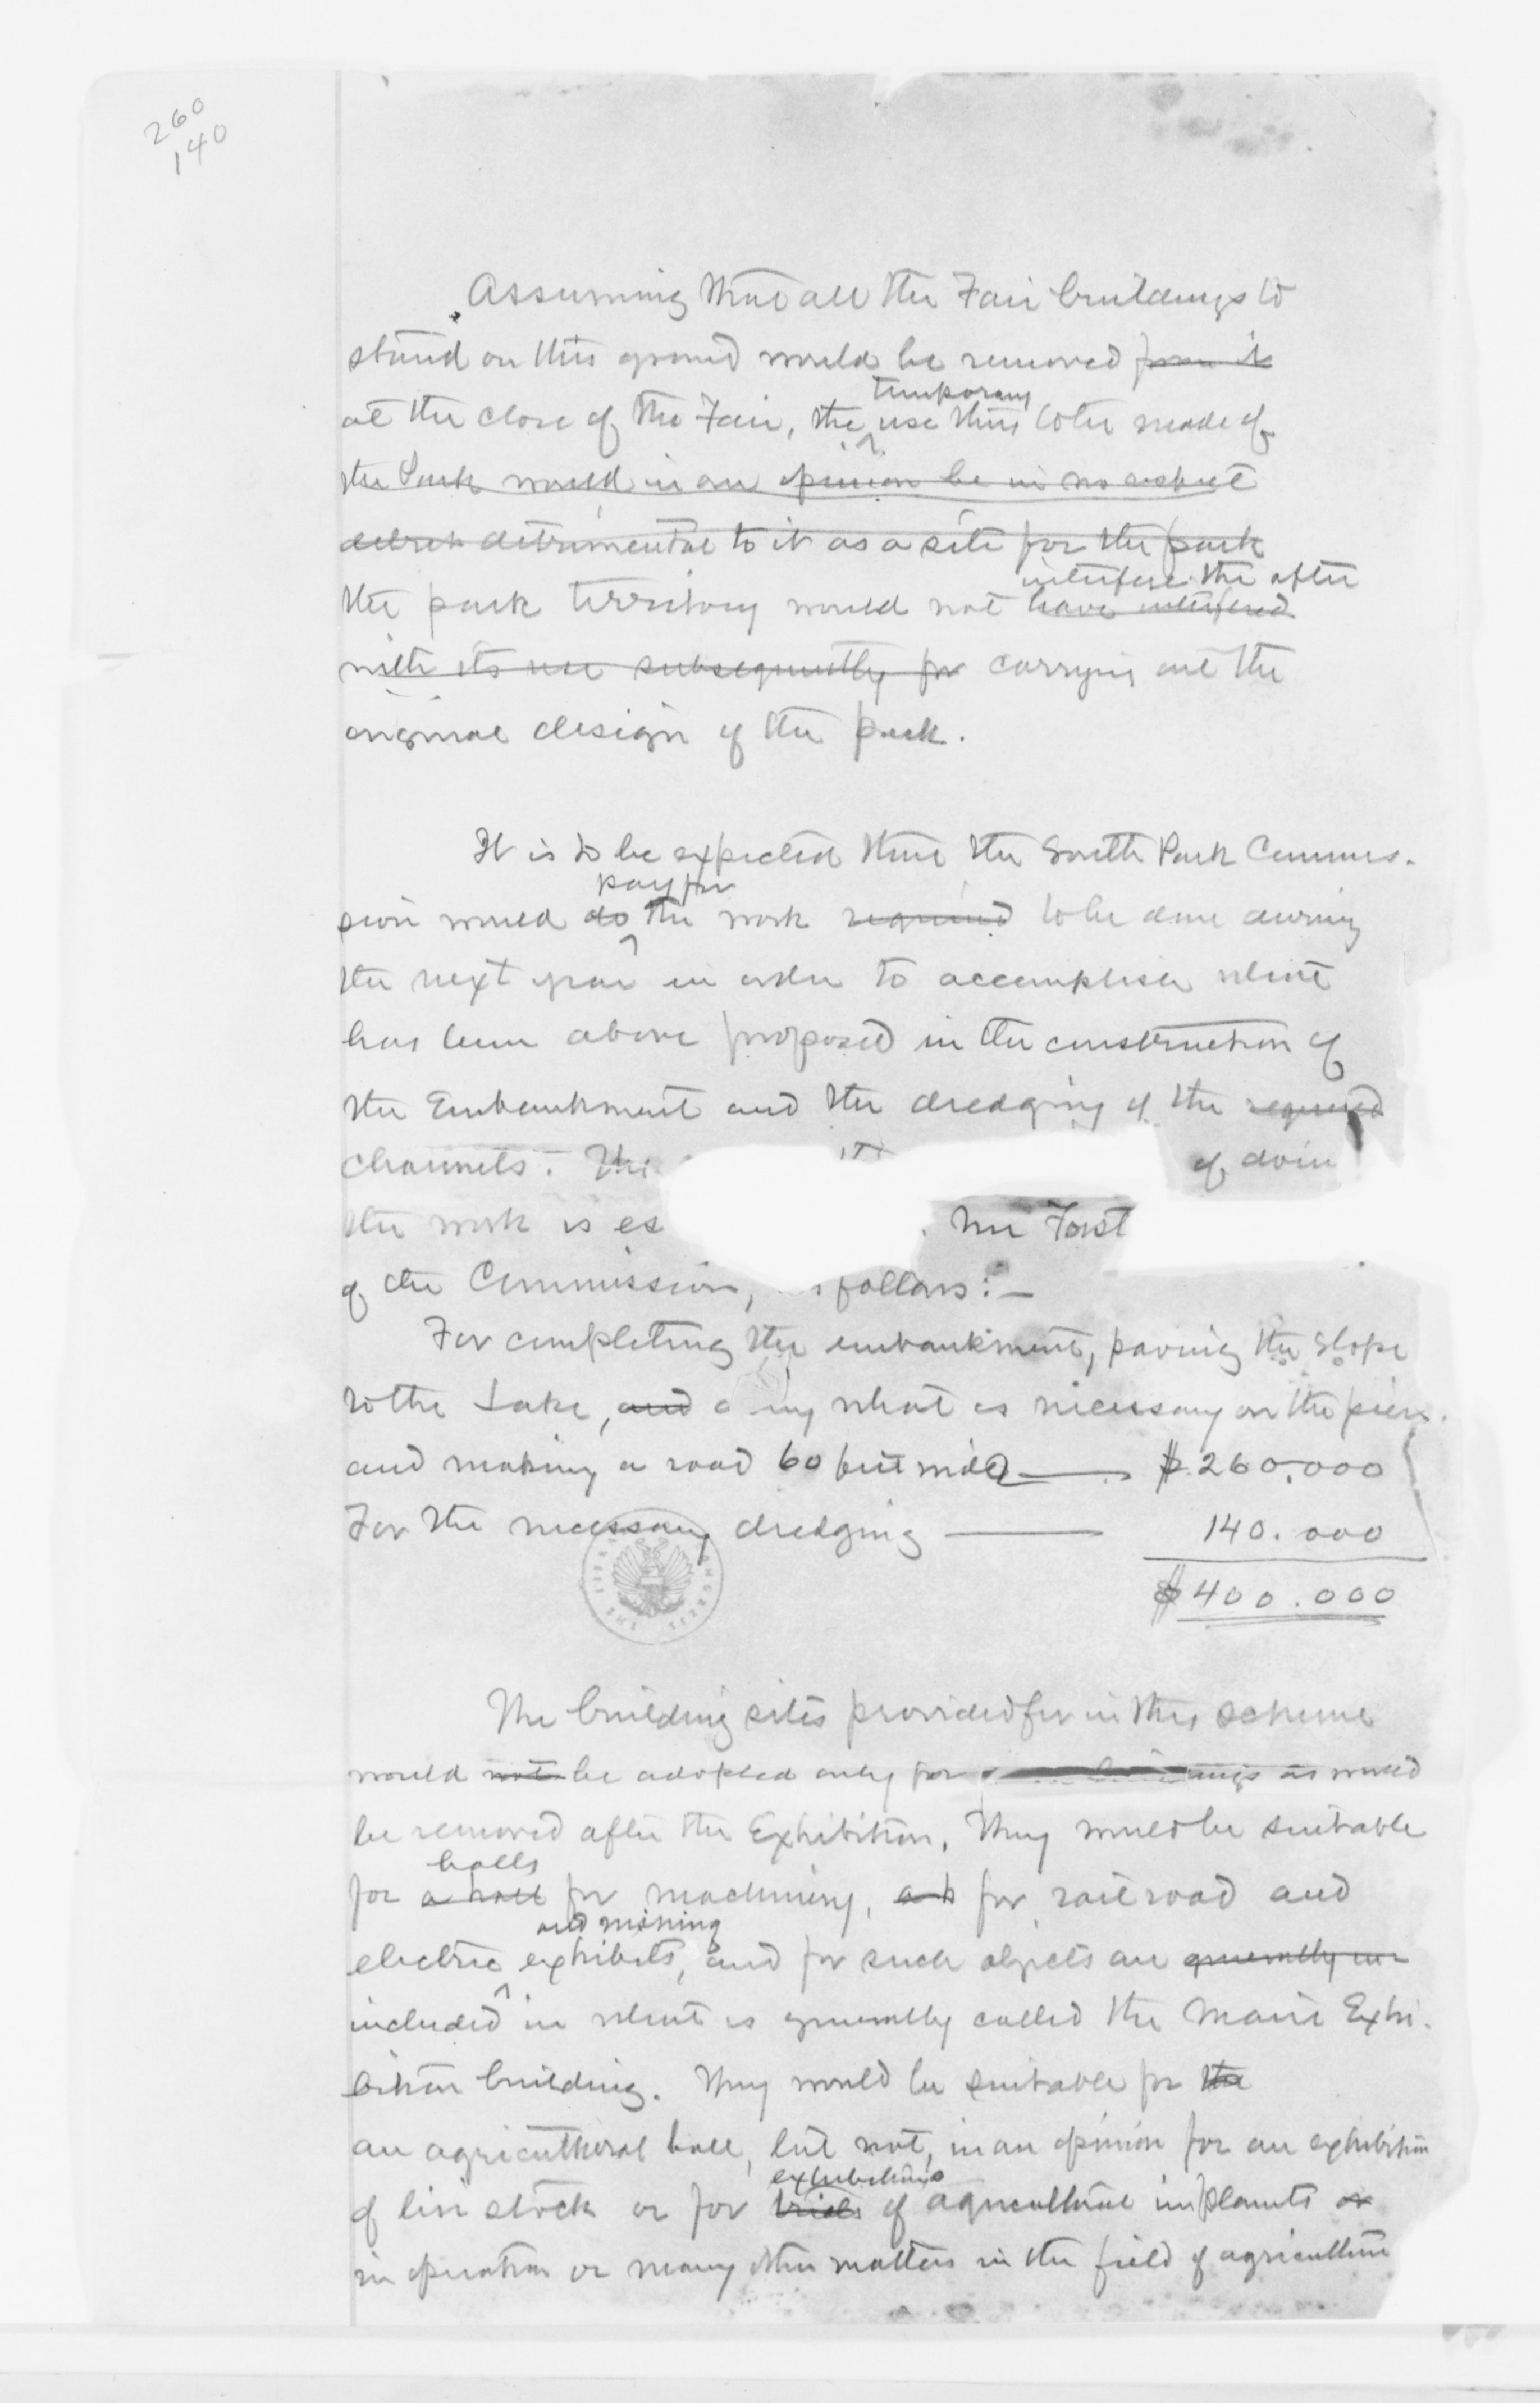 260
140
Assuming that all the Fair buildings to
stand on this ground would be removed from it
at the close of the Fair, the temporary use thus to be made of
the Park would in our opinion be in no respect
detrimental to it as a site for the park
the park territory would not have interfered interfere the after
with its use subsequently for carrying out the
original design of the park.
It is to be expected that the South Park Commis-
sion would do pay for the work required to be done during
the next year in order to accomplish what
has been above proposed in the construction of
the Embankment and the dredging of the required
channels. The of doin
the work is es Mr Fost
of the Commission, follows:—
For completing the embankment, paving the slope
to the Lake, and ing what is necessary on the piers.
and making a road 60 feet wide — $260.000
For the necessary dredging — 140.000
$400.000
The building sites provided for in this scheme
would not be adopted only for as would
be removed after the Exhibition. They would be suitable
for a hall halls for machinery, for railroad and
electric and mining exhibits, and for such objects are generally in
included in what is generally called the Main Exhi-
bition building. They would be suitable for the
an agricultural hall, but not, in our opinion for an exhibition
of live stock or for trials exhibitions of agricultural implements or
in operation or many other matters in the field of agriculture